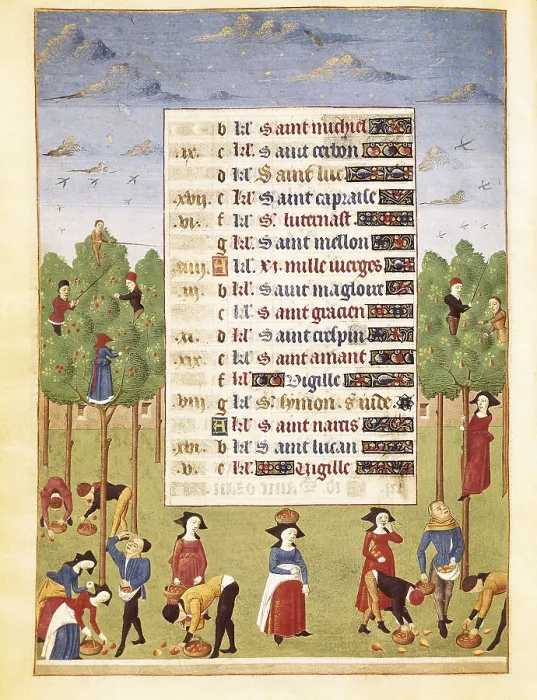 b kl' Saint michiel
.ix. c kl' Saint cerbon
d kl' Saint luc
.xvii. e kl' Saint capraise
.vi. f kl' St.
g kl' Saint mellon
.xiiii. A kl' xi. mille vierges
.iii. b kl' Saint magloire
c kl' Saint gracien
.xi. d kl' Saint crespin
.xix. e kl' Saint amant
f kl' Vigille
.viii. g kl' St. symon. St iude.
A kl' Saint narcis
.xvi. b kl' Saint lucan
.v. c kl' Vigille